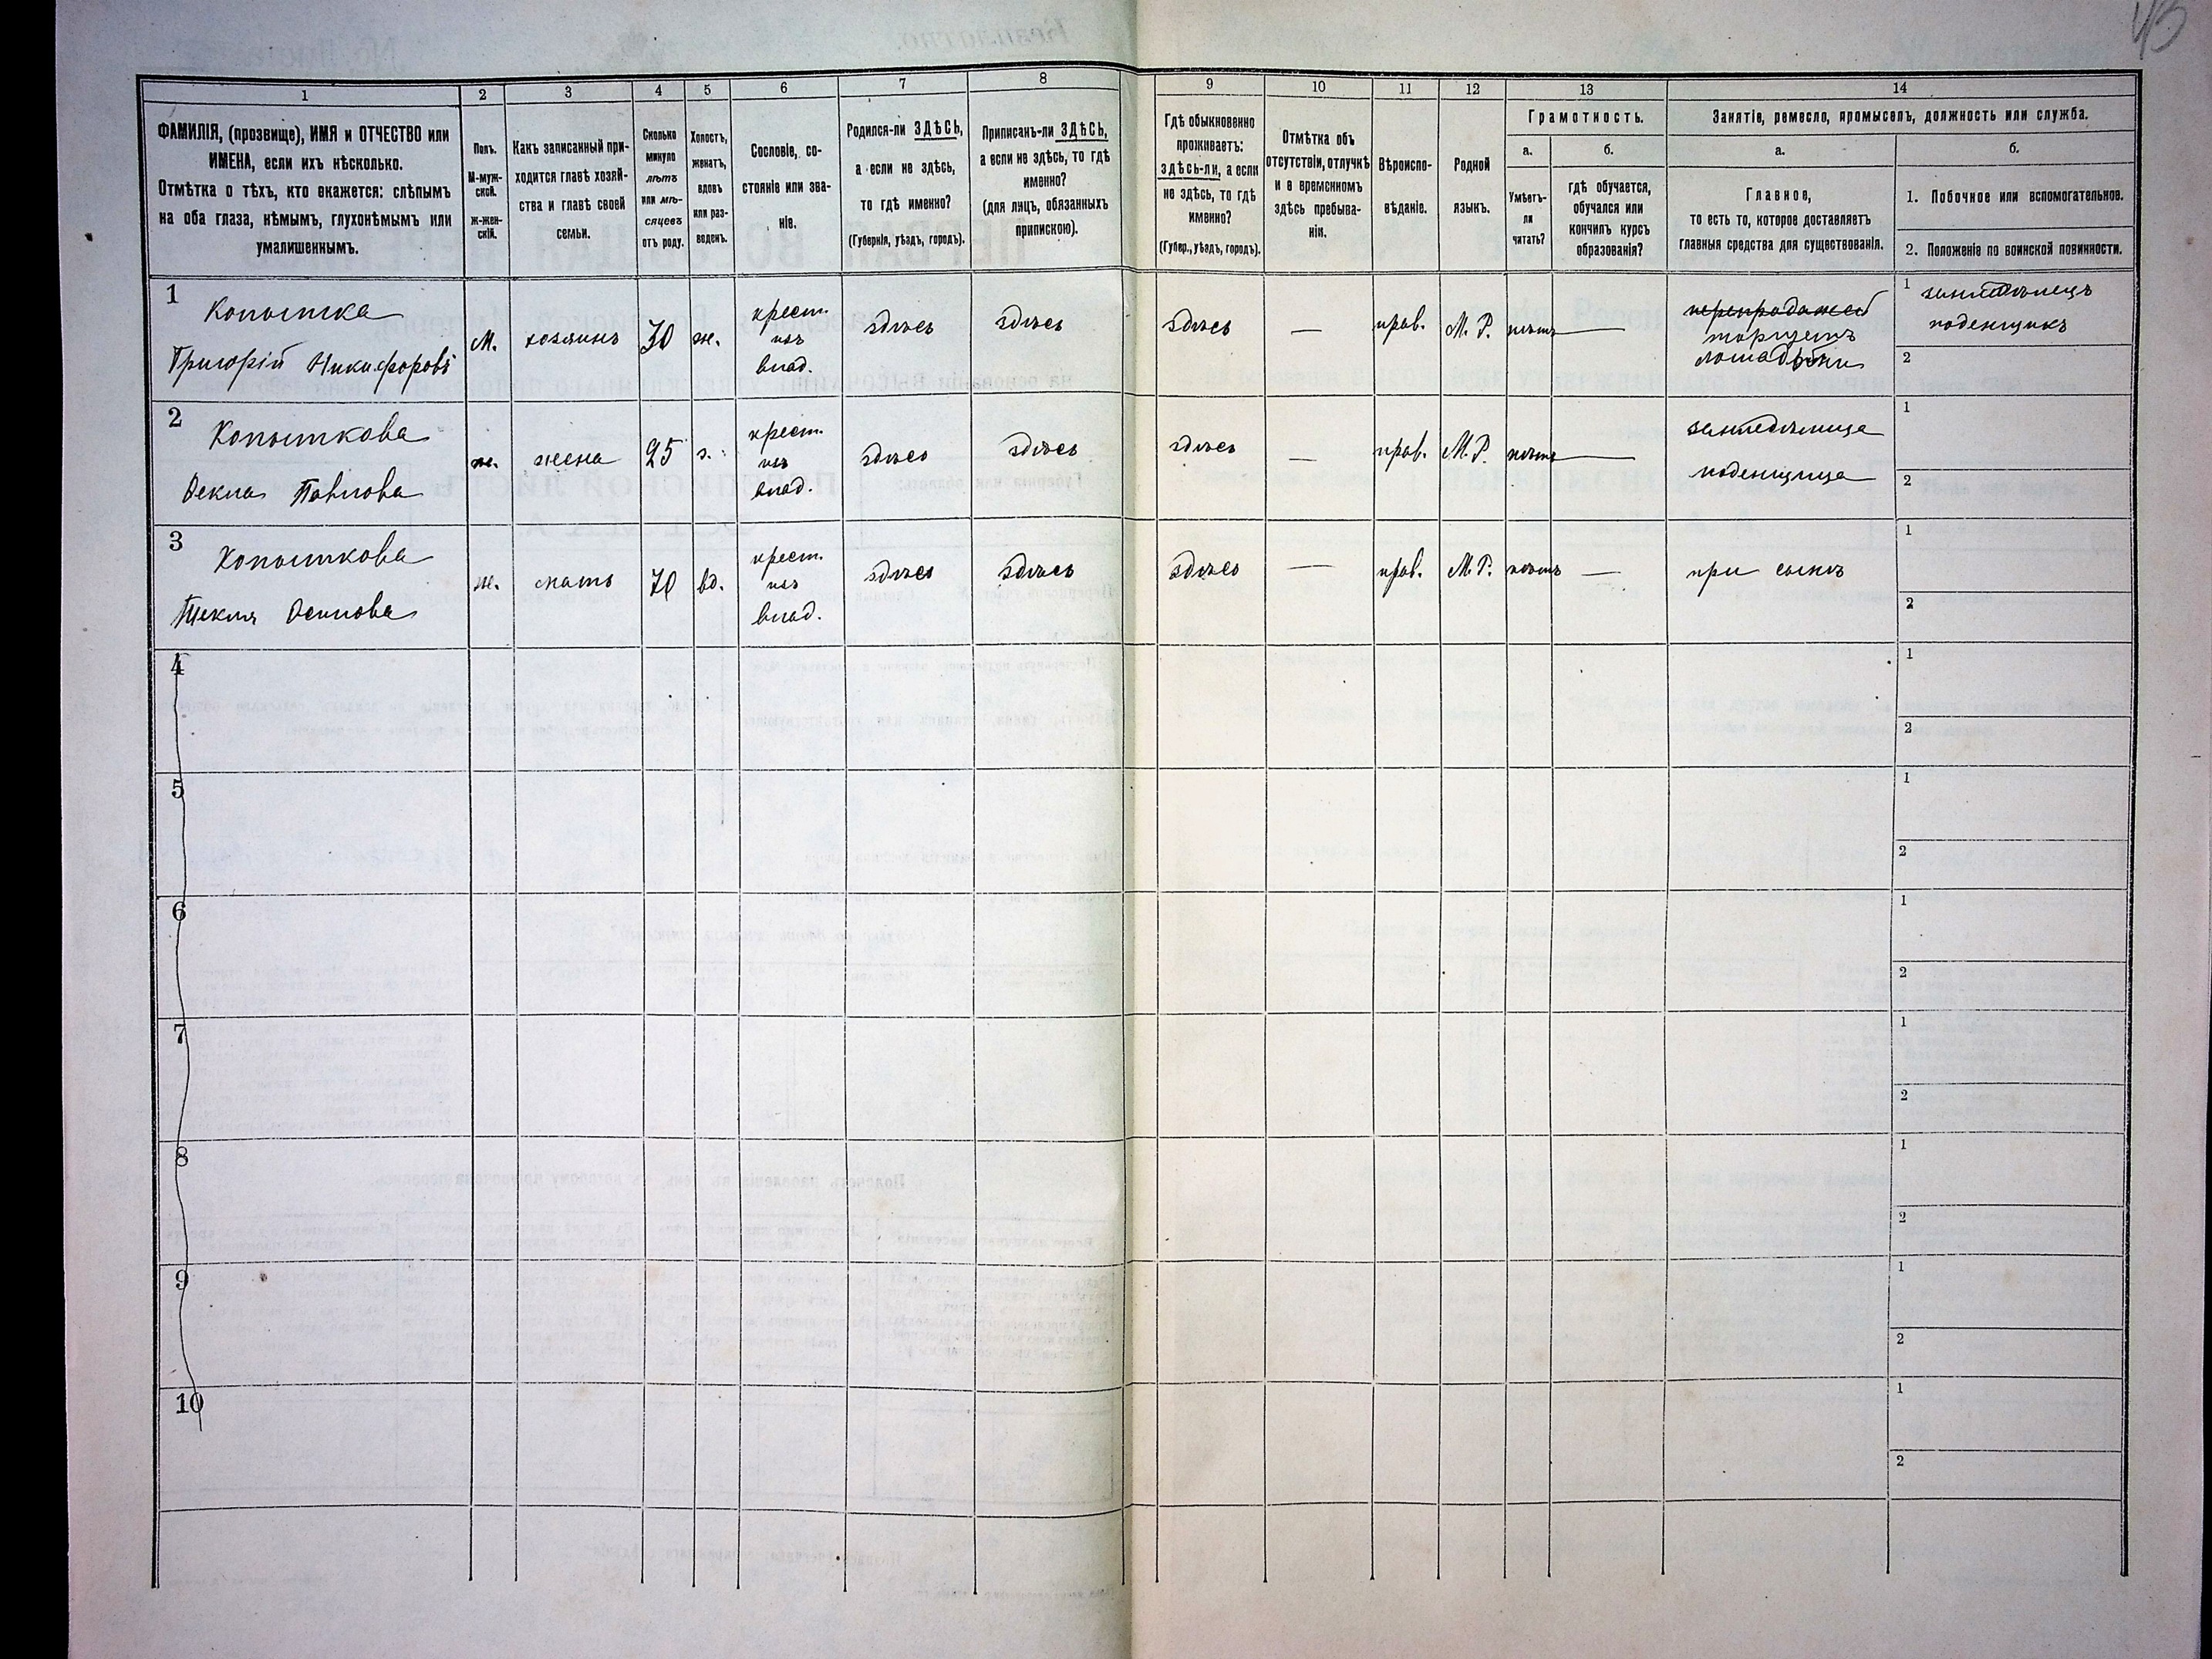 43
1
2
3
4
5
6
7
8
9
10
11
12
13
14
ФАМИЛІЯ, (прозвище), ИМЯ и ОТЧЕСТВО или
ИМЕНА, если ихъ нѣсколько.
Отмѣтка о тѣхъ, кто окажется: слѣпымъ
на оба глаза, нѣмымъ, глухонѣмымъ или
умалишеннымъ.
Полъ.
М-муж-
ской.
ж-жен-
скій.
Какъ записанный при-
ходится главѣ хозяй-
ства и главѣ своей
семьи.
Сколько
минуло
лѣтъ
или мѣ-
сяцевъ
отъ роду.
Холостъ,
женатъ,
вдовъ
или раз-
веденъ.
Сословіе, со-
стояніе или зва-
ніе.
Родился-ли ЗДѢСЬ,
а если не здѣсь,
то гдѣ именно?
(Губернія, уѣздъ, городъ).
Приписанъ-ли ЗДѢСЬ,
а если не здѣсь, то гдѣ
именно?
(для лицъ, обязанныхъ
припискою).
Гдѣ обыкновенно
проживаетъ:
здѣсь-ли, а если
не здѣсь, то гдѣ
именно?
(Губер., уѣздъ, городъ).
Отмѣтка объ
отсутствіи, отлучкѣ
и о временномъ
здѣсь пребыва-
ніи.
Вѣроиспо-
вѣданіе.
Родной
языкъ.
Грамотность.
а.
Умѣетъ-
ли
читать?
б.
гдѣ обучается,
обучался или
кончилъ курсъ
образованія?
Занятіе, ремесло, промыселъ, должность или служба.
а.
Главное,
то есть то, которое доставляетъ
главныя средства для существованія.
б.
1. Побочное или вспомогательное.
2. Положеніе по воинской повинности.
1
Копытка
Григорій Никифоровъ
М.
хозяинъ
30
ж.
крест.
изъ
влад.
здѣсь
здѣсь
здѣсь
—
прав.
М. Р.
нѣтъ
—
перепродажей
торгуетъ
лошадьми
1
земледѣлецъ
поденщикъ
2
2
Копыткова
Фекла Павлова
ж.
жена
25
з.
крест.
изъ
влад.
здѣсь
здѣсь
здѣсь
—
прав.
М. Р.
нѣтъ
—
земледѣлица
поденщица
1
2
3
Копыткова
Текля Осипова
ж.
мать
70
вд.
крест.
изъ
влад.
здѣсь
здѣсь
здѣсь
—
прав.
М. Р.
нѣтъ
—
при сынѣ
1
2
4
1
2
5
1
2
6
1
2
7
1
2
8
1
2
9
1
2
10
1
2